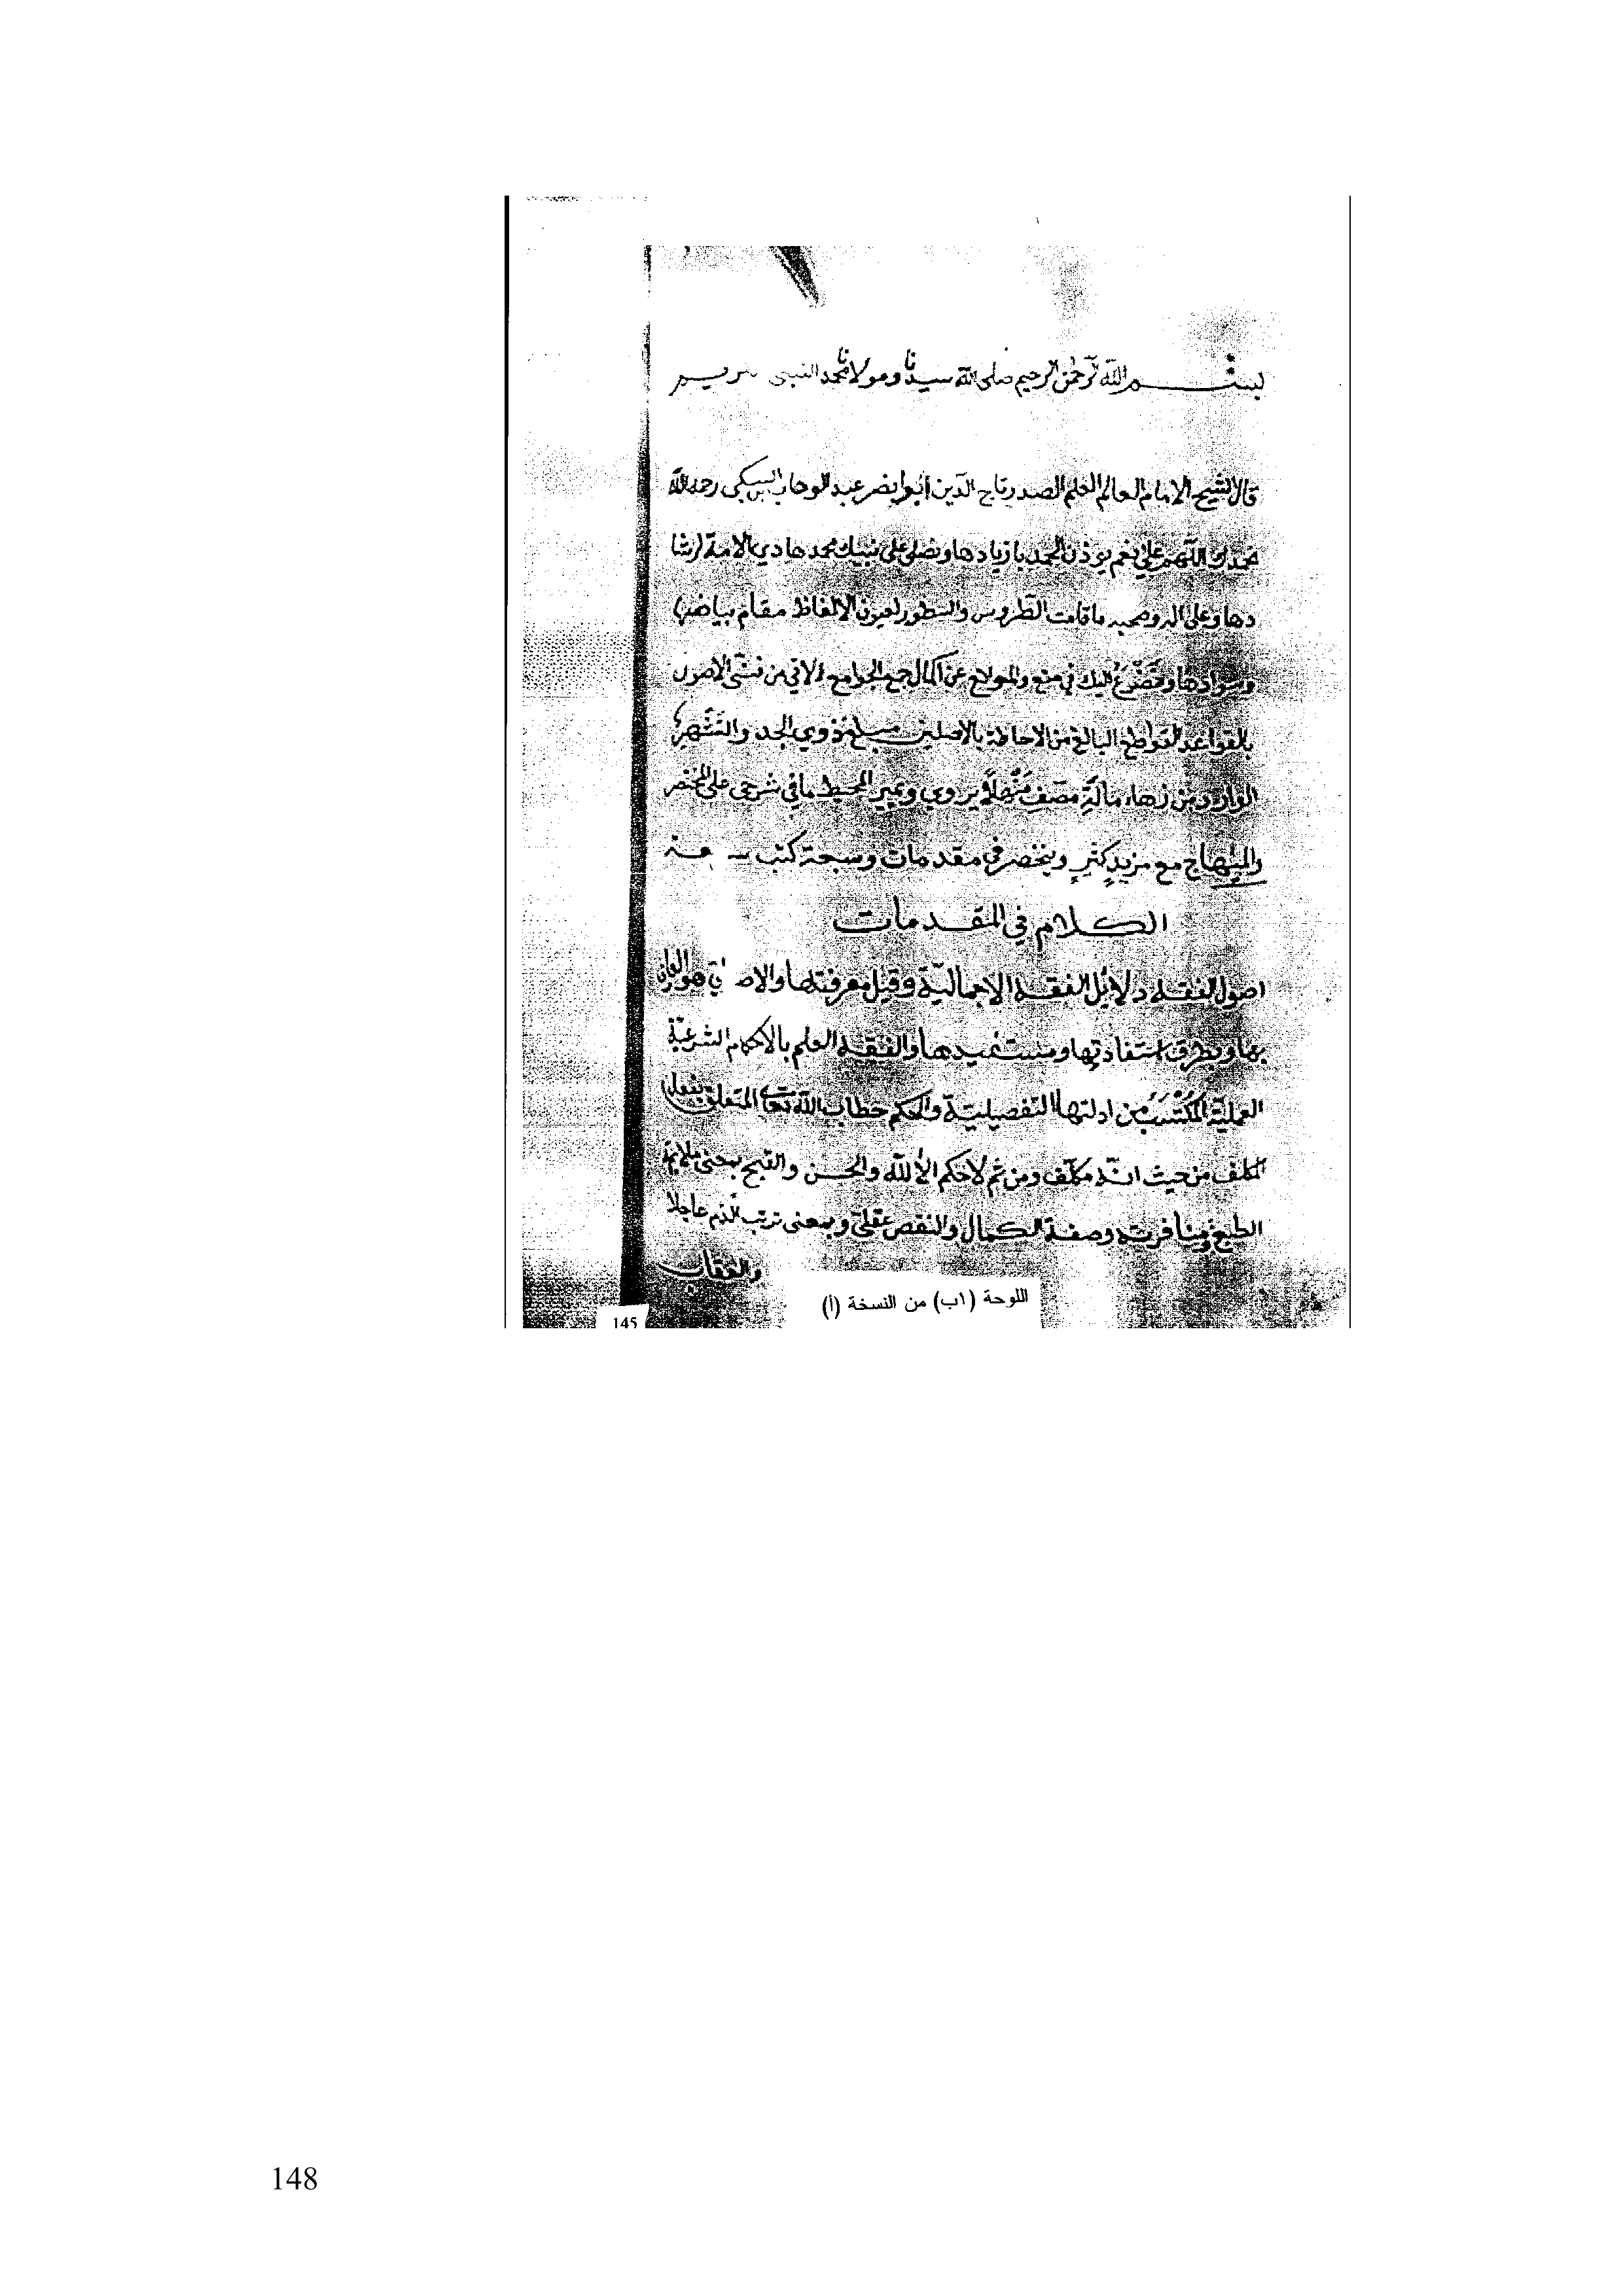 بسم الله الرحمن الرحيم صلى الله سيدنا ومولانا محمد النبي
قال الشيخ الامام العالم العلم الصدر تاج الدين ابوا نصر عبد الوهاب السبكى رحمه الله
نحمدك اللهم على نعم يوذن الحمد بازيادها ونصلى على نبيك محمد هادي الامة لرشا
دها وعلى اله وصحبه ما قامت الطروس والسطور لعيون الالفاظ مقام بياضها
وسوادها ونضرع اليك في منع الموانع عن اكمال جمع الجوامع الاتي من فني الاصول
بالقواعد القواطع البالغ من الاحاطة بالاصلين مبلغ ذوي الجد والتشمير
الوارد من زهاء مائة مصنف منهلا يروي ويمير المحيط بما في شرحي على المختصر
والمنهاج مع مزيد كثير وينحصر في مقدمات وسبعة كتب
الكلام في المقدمات
اصول الفقه دلائل الفقه الاجمالية وقيل معرفتها والاصولي العارف
بها وبطرق استفادتها ومستفيدها والفقه العلم بالاحكام الشرعية
العملية المكتسب من ادلتها التفصيلية والحكم خطاب الله تعالى المتعلق بفعل
المكلف من حيث انه مكلف ومن ثم لا حكم الا لله والحسن والقبح بمعنى ملايمة
الطبع ومنافرته وصفة الكمال والنقص عقلي وبمعنى ترتب الذم عاجلا
والعقاب
اللوحة (١ب) من النسخة (أ)
145
148